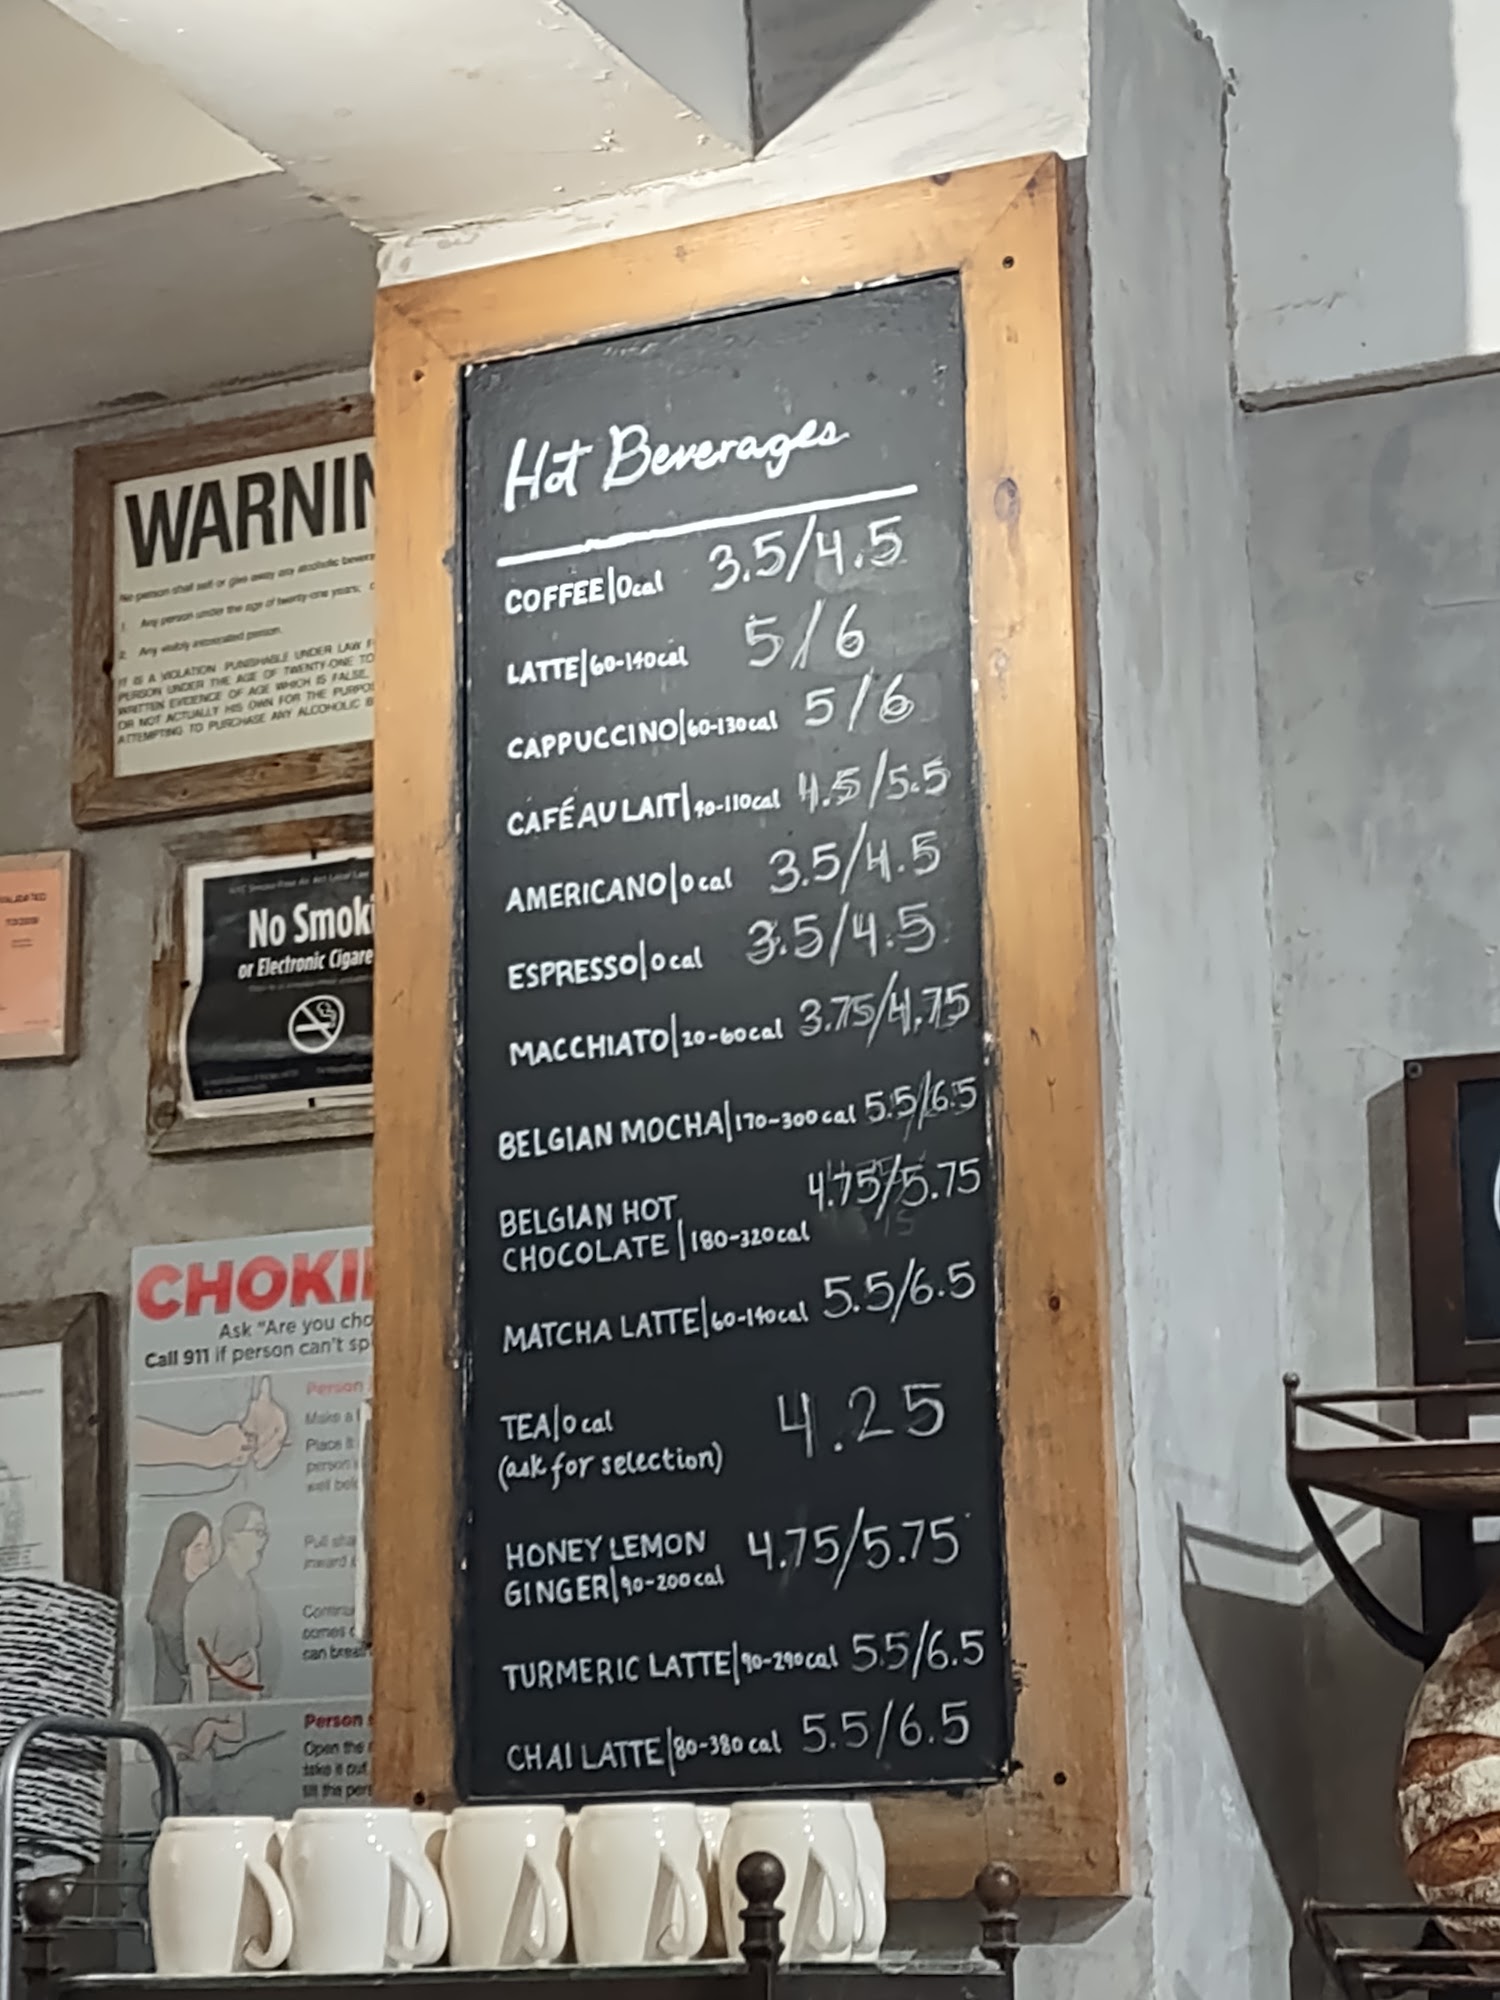 Hot Beverages
COFFEE|0cal 3.5/4.5
LATTE|60-140cal 5/6
CAPPUCCINO|60-130cal 5/6
CAFÉ AU LAIT|40-110cal 4.5/5.5
AMERICANO|0cal 3.5/4.5
ESPRESSO|0cal 3.5/4.5
MACCHIATO|20-60cal 3.75/4.75
BELGIAN MOCHA|170-300cal 5.5/6.5
BELGIAN HOT 4.75/5.75
CHOCOLATE|180-320cal
MATCHA LATTE|60-140cal 5.5/6.5
TEA|0cal 4.25
(ask for selection)
HONEY LEMON 4.75/5.75
GINGER|90-200cal
TURMERIC LATTE|90-290cal 5.5/6.5
CHAI LATTE|80-380cal 5.5/6.5
WARNIN
No person shall sell or give away any alcoholic
1. Any person under the age of twenty-one years;
2. Any visibly intoxicated person.
IT IS A VIOLATION PUNISHABLE UNDER LAW
PERSON UNDER THE AGE OF TWENTY-ONE TO
WRITTEN EVIDENCE OF AGE WHICH IS FALSE,
OR NOT ACTUALLY HIS OWN FOR THE
ATTEMPTING TO PURCHASE ANY ALCOHOLIC
No Smoki
or Electronic Cigare
CHOKI
Ask "Are you cho
Call 911 if person can't sp
Person
Make a
Place
person
Pull
inward
comes
can
Person
Open the
take it out
till the